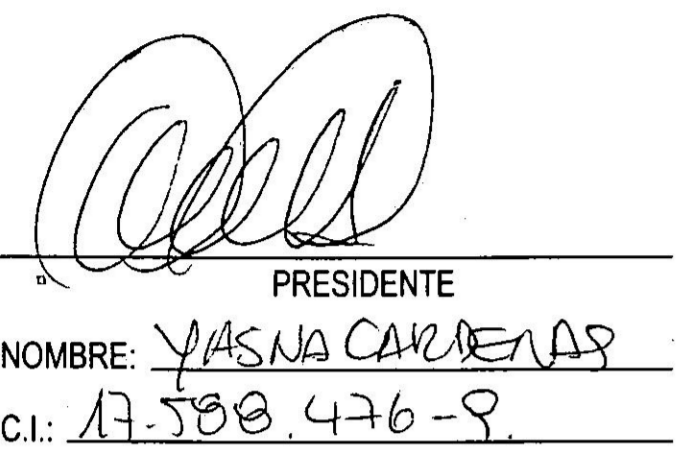 PRESIDENTE
NOMBRE: YASNA CARDENAS
C.I.: 17-588.476-9.